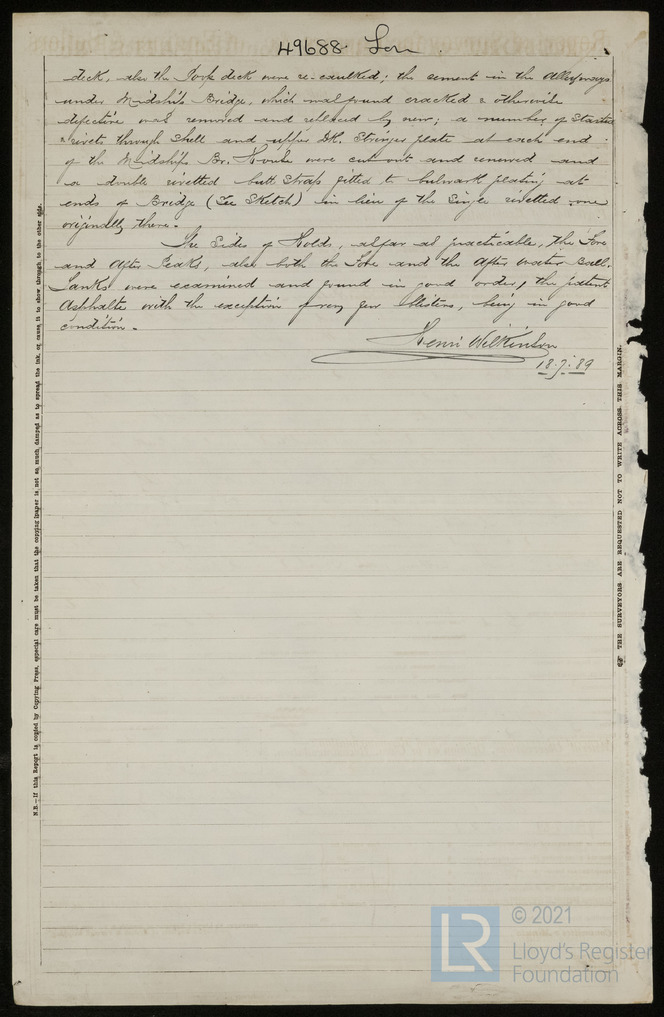 49688 Lon
deck, also the Poop deck were re-caulked; the cement in the Alleyways
under Midship Bridge, which was found cracked & otherwise
defective was removed and replaced by new; a number of started
rivets through Shell and upper Dk. Stringer plate at each end
of the Midships Br. House were cut out and renewed and
a double rivetted butt strap fitted to bulwark plating at
ends of Bridge (See Sketch) in lieu of the Single rivetted one
originally there.
The Sides of Holds, as far as practicable, the Fore
and After Peaks, also both the Fore and the After water Ball.
Tanks were examined and found in good order, the patent
Asphalte with the exception of very few blisters, being in good
condition.
Henri Wilkinson
18.7.89
N.B.—If this Report is copied by Copying Press, especial care must be taken that the copying paper is not so much damped as to spread the ink, or cause it to show through to the other side.
THE SURVEYORS ARE REQUESTED NOT TO WRITE ACROSS THIS MARGIN.
LR
© 2021
Lloyd's Register
Foundation